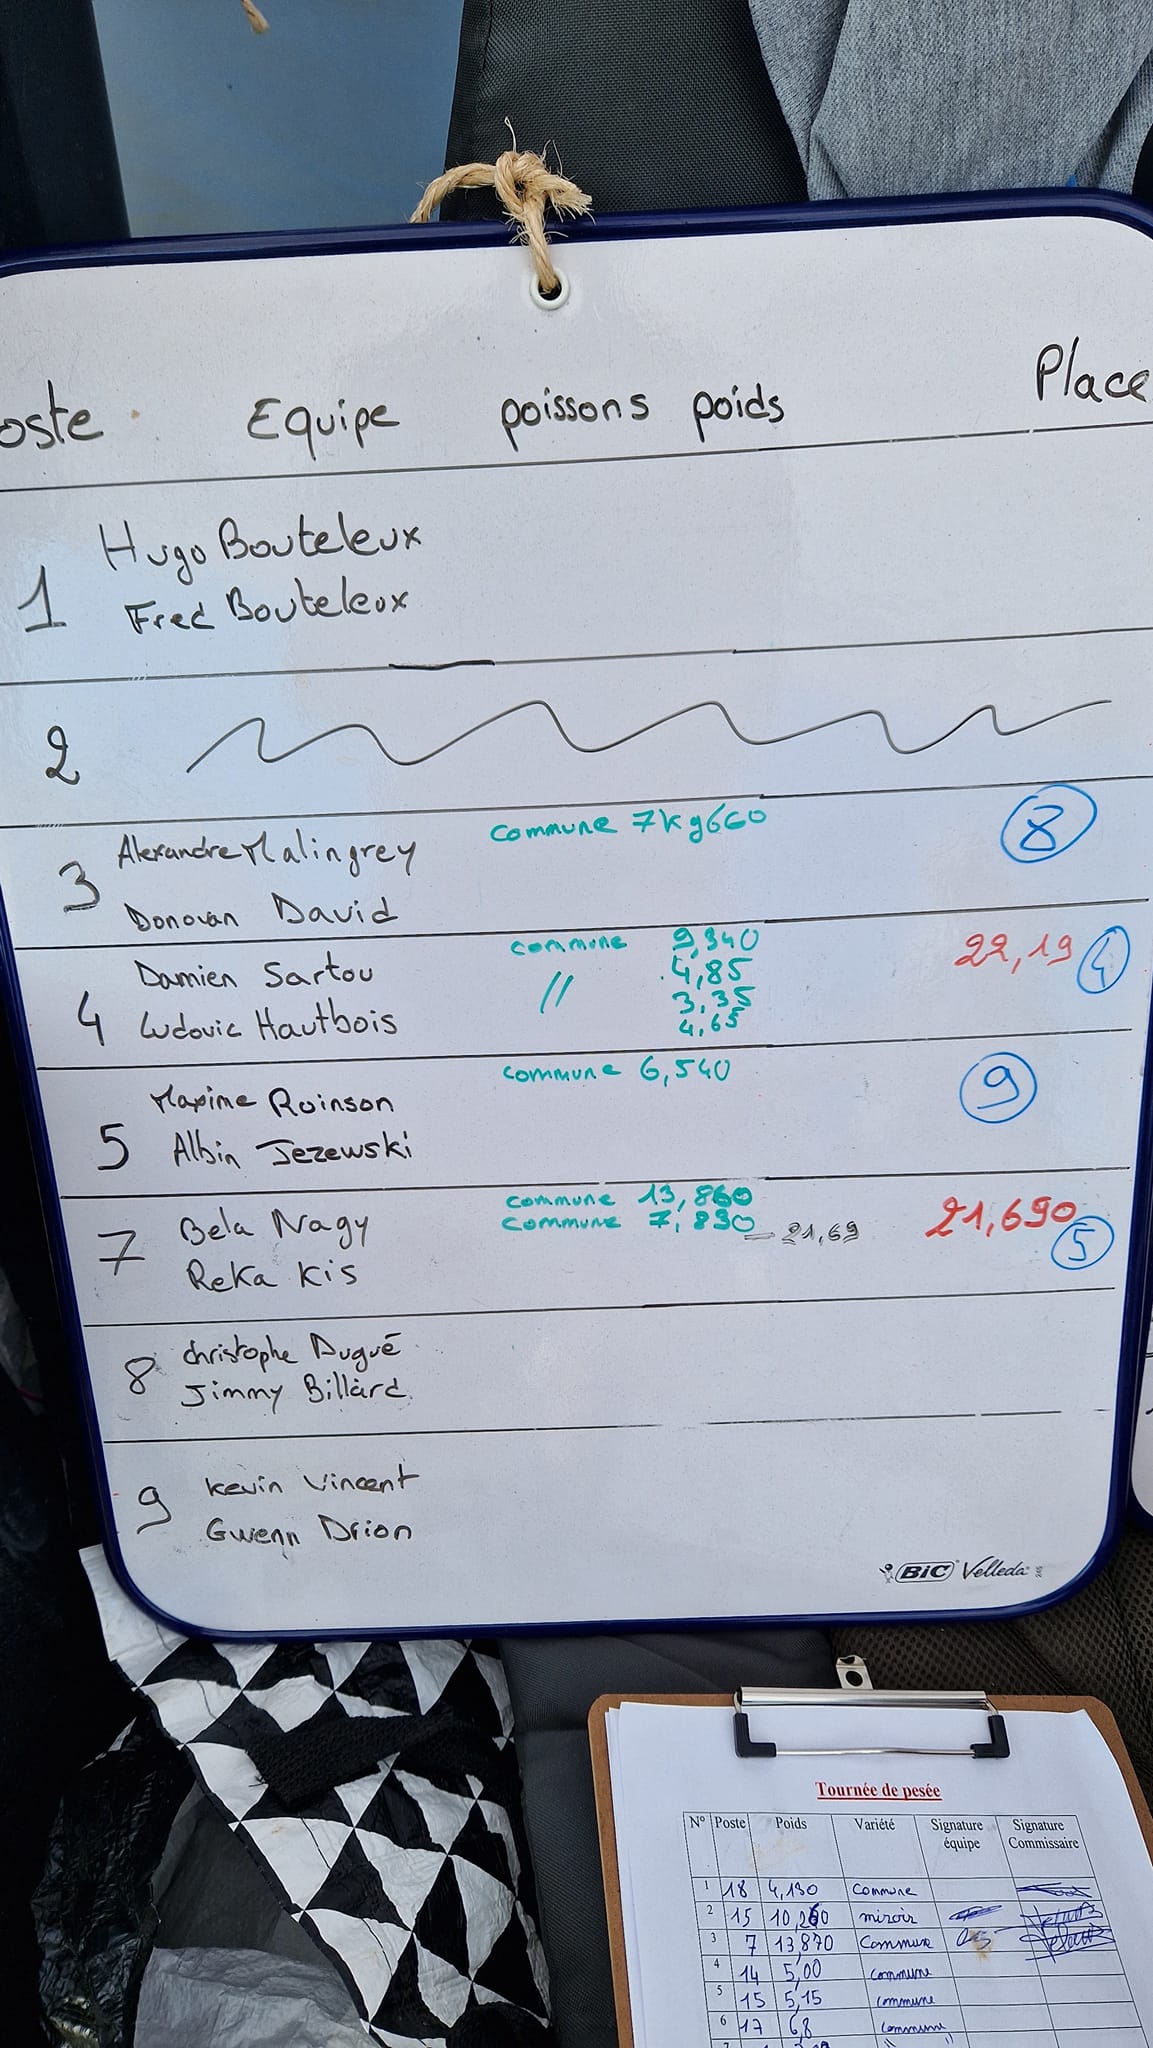 oste Equipe poissons poids Place
Hugo Bouteleux
1
Fred Bouteleux
2
Alexandre Malingrey commune 7kg660 8
3
Donovan David
Damien Sartou commune 9,340 22,19 4
// 4,85
4 Ludovic Hautbois 3,35
4,65
Maxime Roinson commune 6,540 9
5 Albin Jezewski
Bela Nagy commune 13,860 21,690
7 commune 7,830 = 21,69 5
Reka Kis
Christophe Dugué
8 Jimmy Billard
Kevin Vincent
9
Gwenn Drion
BiC Velleda
Tournée de pesée
N° Poste Poids Variété Signature équipe Signature Commissaire
1 18 4,130 Commune
2 15 10,260 miroir
3 7 13,870 Commune
4 14 5,00 commune
5 15 5,15 commune
6 17 6,8 commune